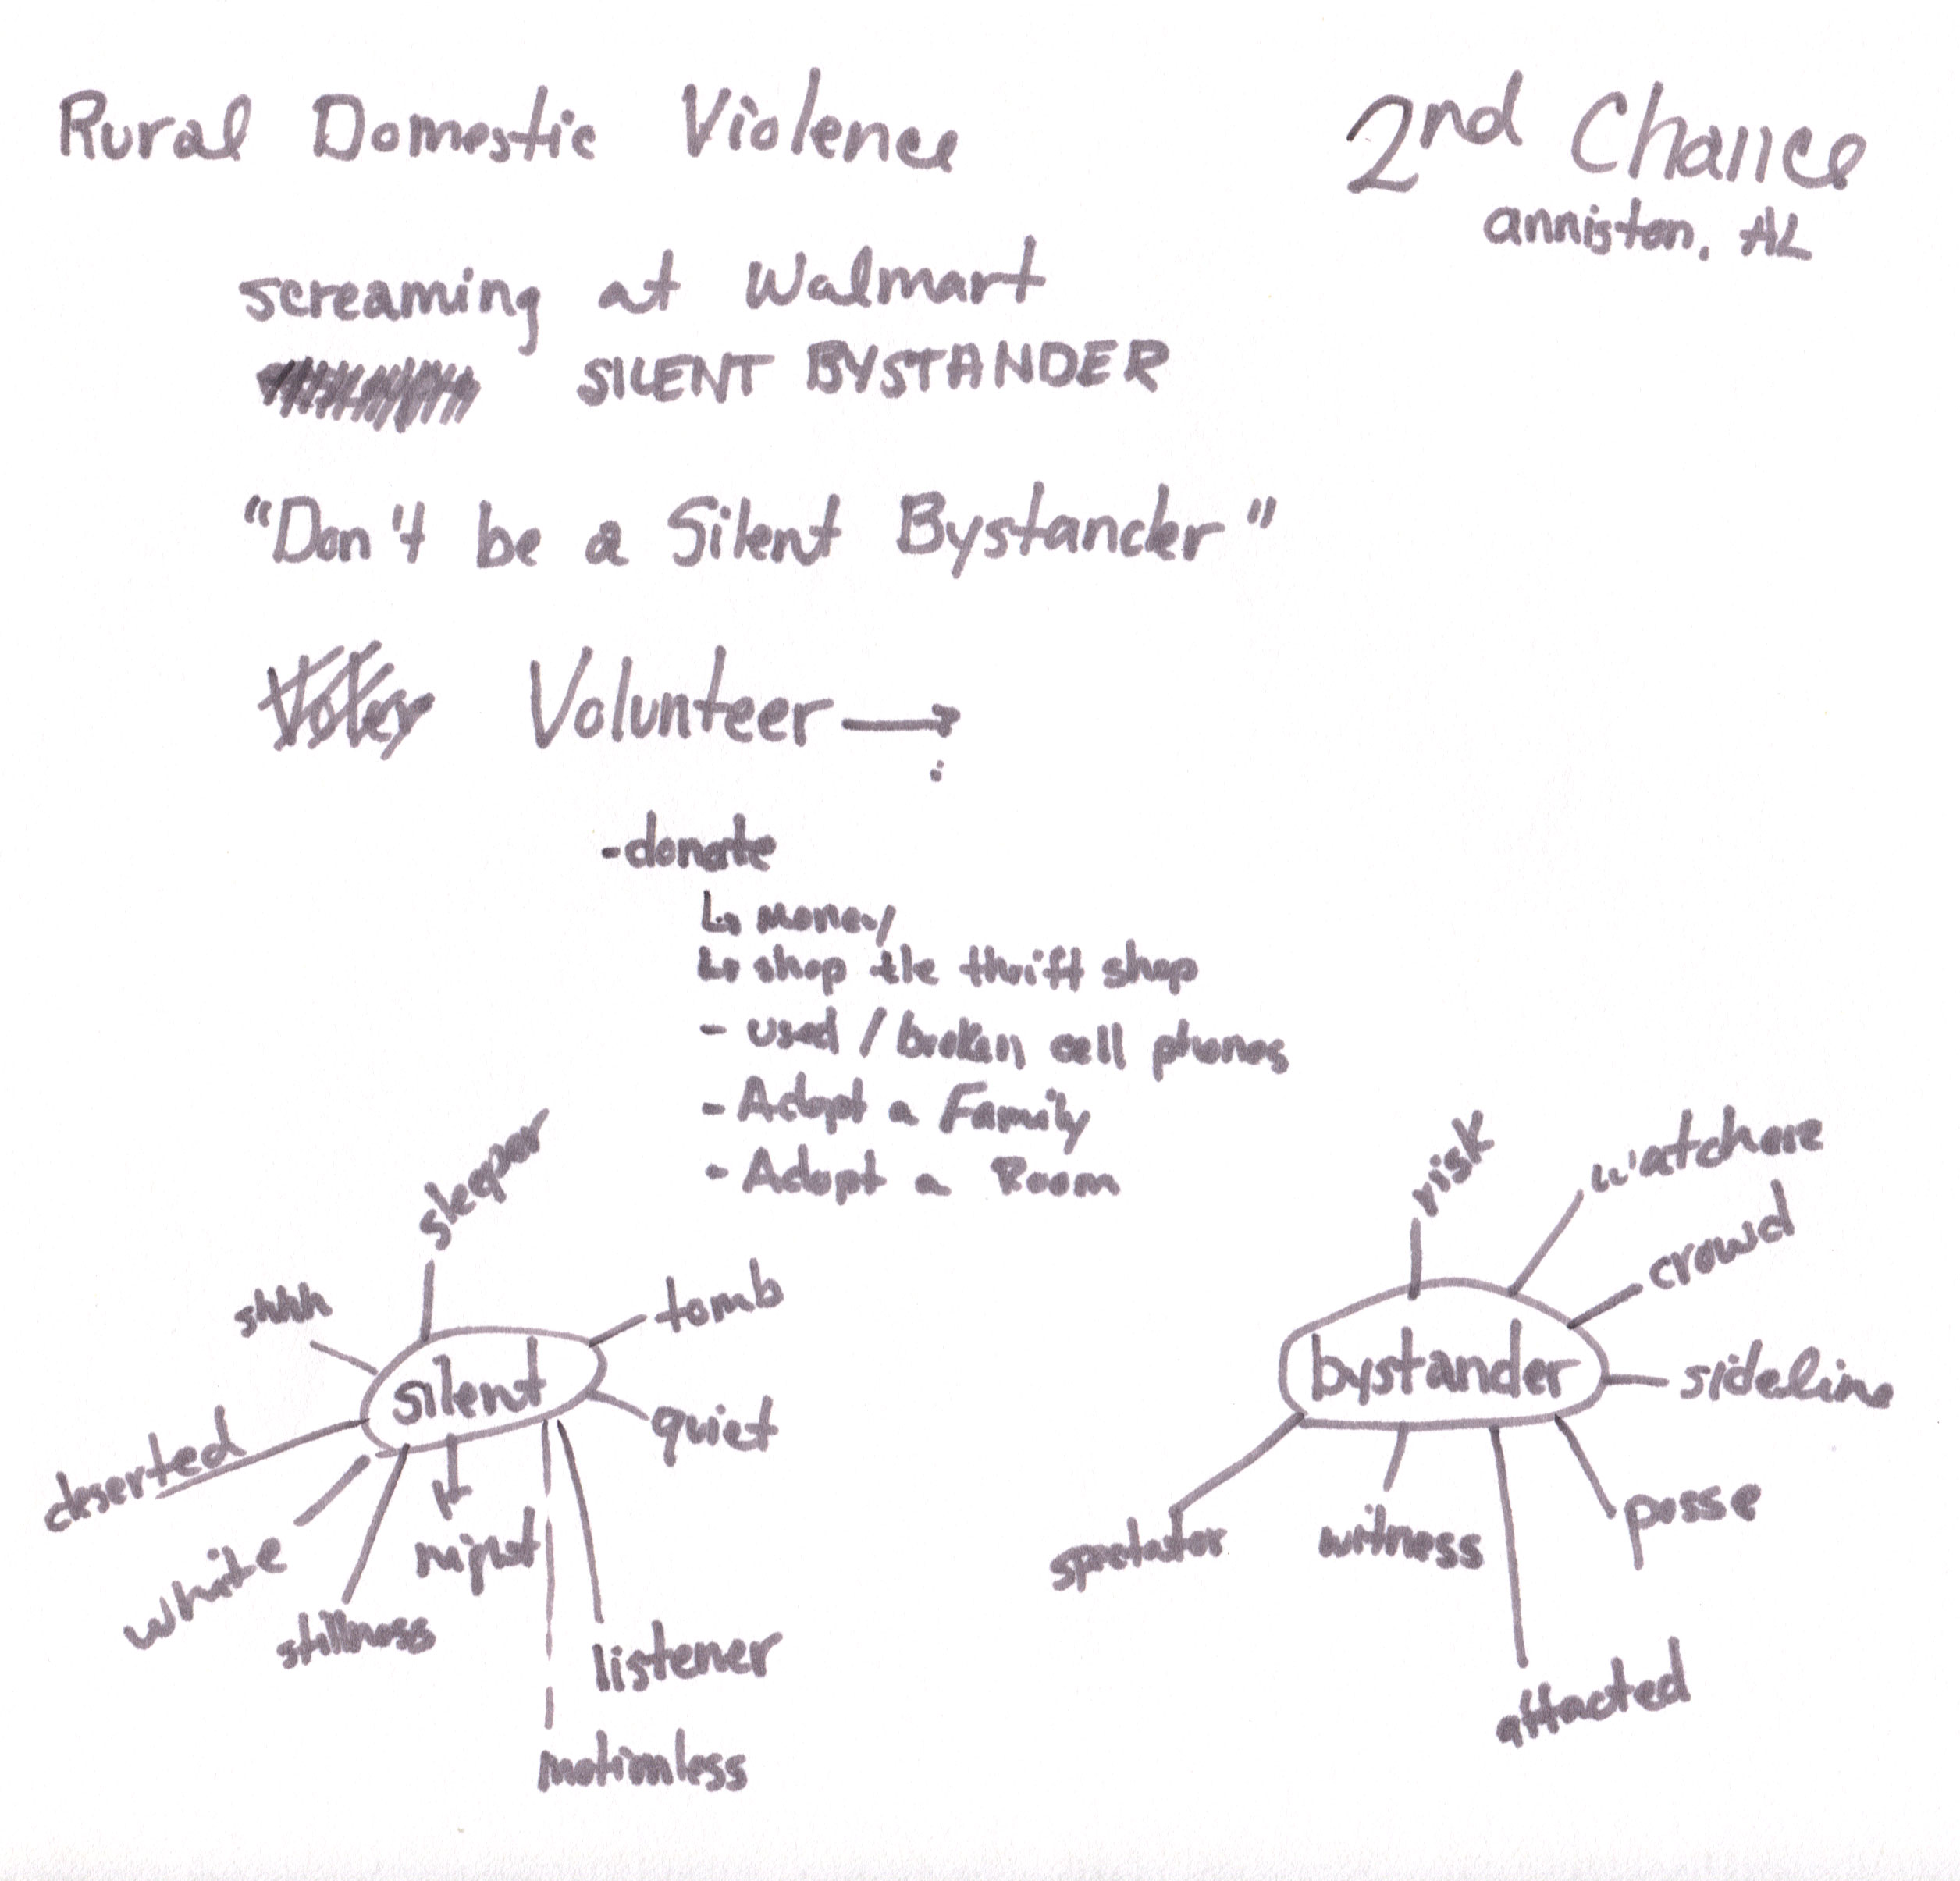 Rural Domestic Violence
2nd Chance
anniston, AL
screaming at Walmart
SILENT BYSTANDER
"Don't be a Silent Bystander"
Volunteer →
-donate
↳ money
↳ shop the thrift shop
- used / broken cell phones
- Adopt a Family
- Adopt a Room
sleeper
shhh
tomb
silent
quiet
deserted
white
stillness
night
listener
motionless
risk
crowd
bystander
sideline
spectator
witness
posse